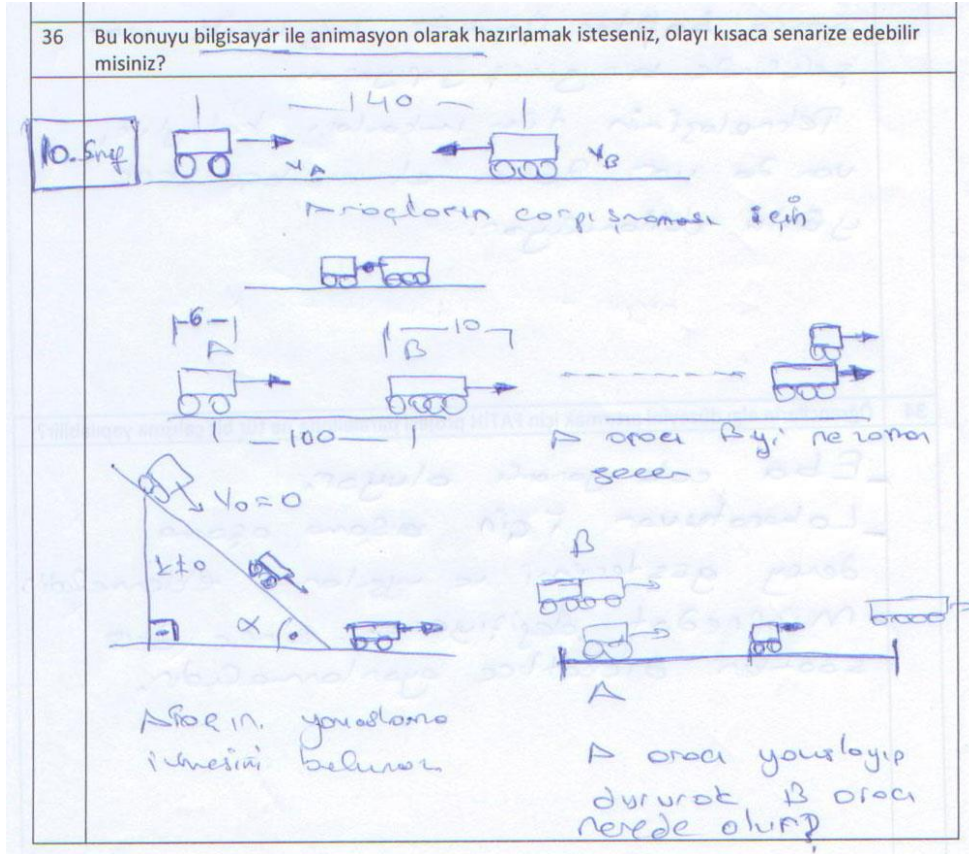 36 Bu konuyu bilgisayar ile animasyon olarak hazırlamak isteseniz, olayı kısaca senarize edebilir
misiniz?
140
10. Sınıf
VA VB
Araçların çarpışmaması için
6 10
A B
100
A aracı B yi ne zaman
geçer
V₀=0
k≠0
B
α
A
Aracın yavaşlama
ivmesini bulunuz
A aracı yavaşlayıp
durursa B aracı
nerede olur?